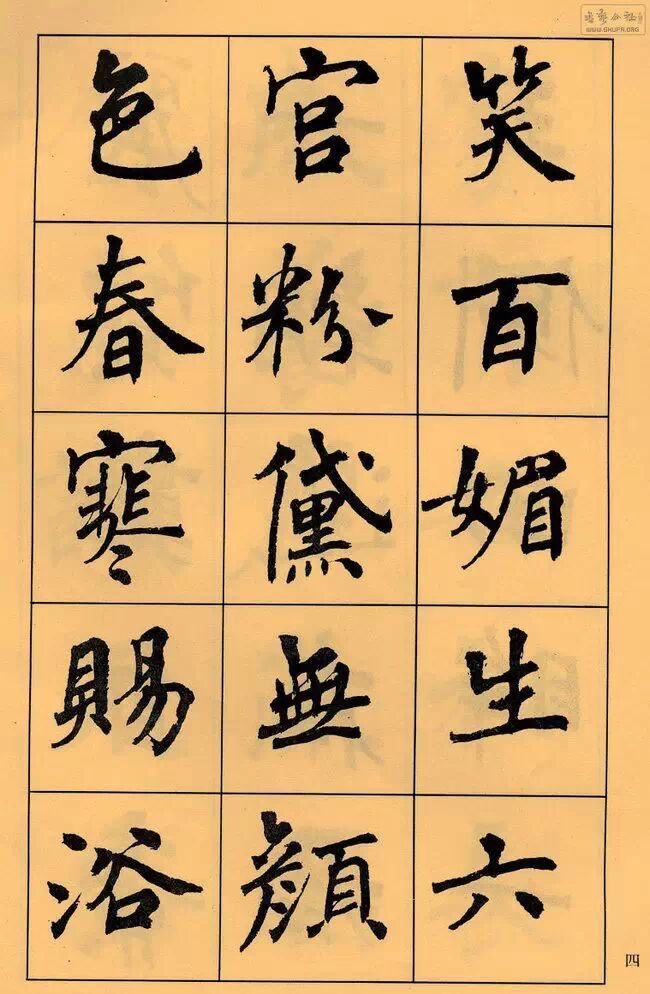 笑百媚生六
宫粉黛無顔
色春寒賜浴
四
WWW.SHUFA.ORG